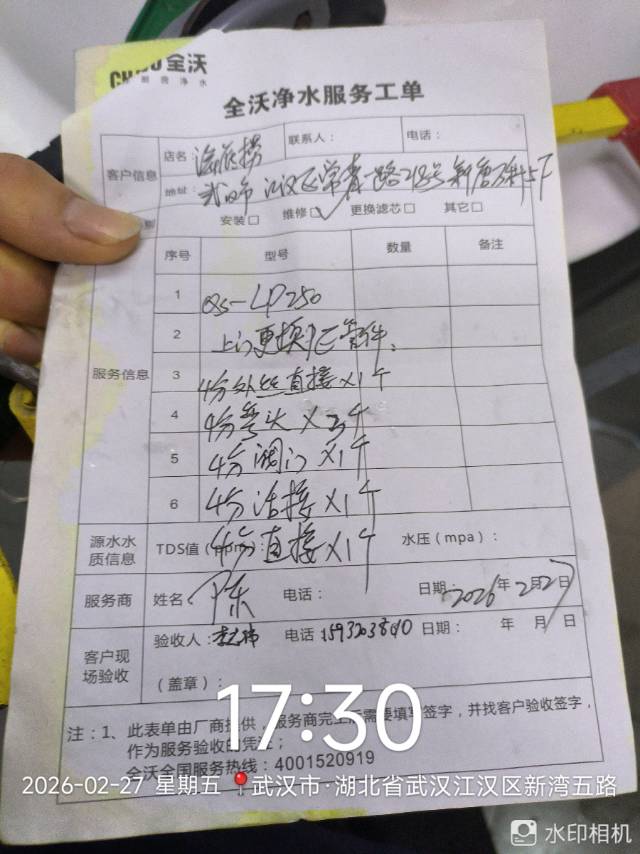 全沃
商用净水
全沃净水服务工单
客户信息
店名：海底捞
联系人：
电话：
地址：武汉市江汉区常青一路218号新唐万科
安装□ 维修☑ 更换滤芯□ 其它□
服务信息
序号 型号 数量 备注
1 QS-LP250
2 上门更换 管件
3 4分外丝直接×1个
4 4分弯头×3个
5 4分阀门×1个
6 4分活接×1个
源水水质信息
TDS值（ppm）： 水压（mpa）：
4分直接×1个
服务商
姓名： 电话： 日期：2026年2月27日
客户现场验收
验收人： 电话 日期： 年 月 日
（盖章）：
注：1、此表单由厂商提供，服务商完工后需要填写签字，并找客户验收签字，
作为服务验收的凭证；
全沃全国服务热线：4001520919
17:30
2026-02-27 星期五 武汉市·湖北省武汉江汉区新湾五路
水印相机